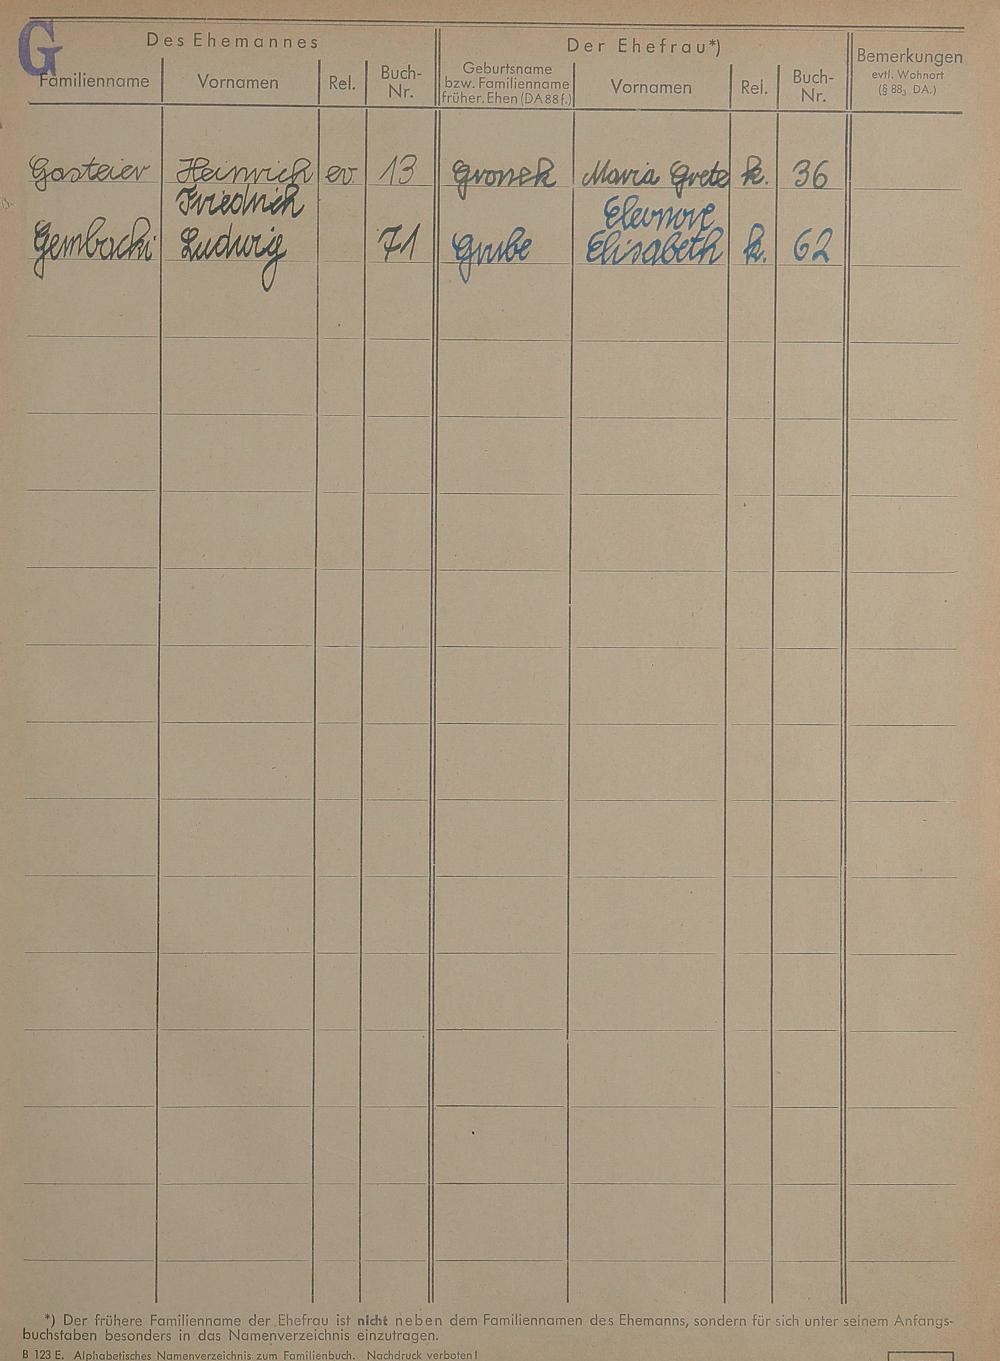 G
Des Ehemannes
Der Ehefrau*)
Familienname
Vornamen
Rel.
Buch-
Nr.
Geburtsname
bzw. Familienname
früher. Ehen (DA 88 f.)
Vornamen
Rel.
Buch-
Nr.
Bemerkungen
evtl. Wohnort
(§ 88, DA.)
Gasteier Heinrich ev. 13 Gronek Maria Grete k. 36
Friedrich Eleonore
Gembacki Ludwig 71 Grube Elisabeth k. 62
*) Der frühere Familienname der Ehefrau ist nicht neben dem Familiennamen des Ehemanns, sondern für sich unter seinem Anfangs-
buchstaben besonders in das Namenverzeichnis einzutragen.
B 123 E. Alphabetisches Namenverzeichnis zum Familienbuch. Nachdruck verboten!